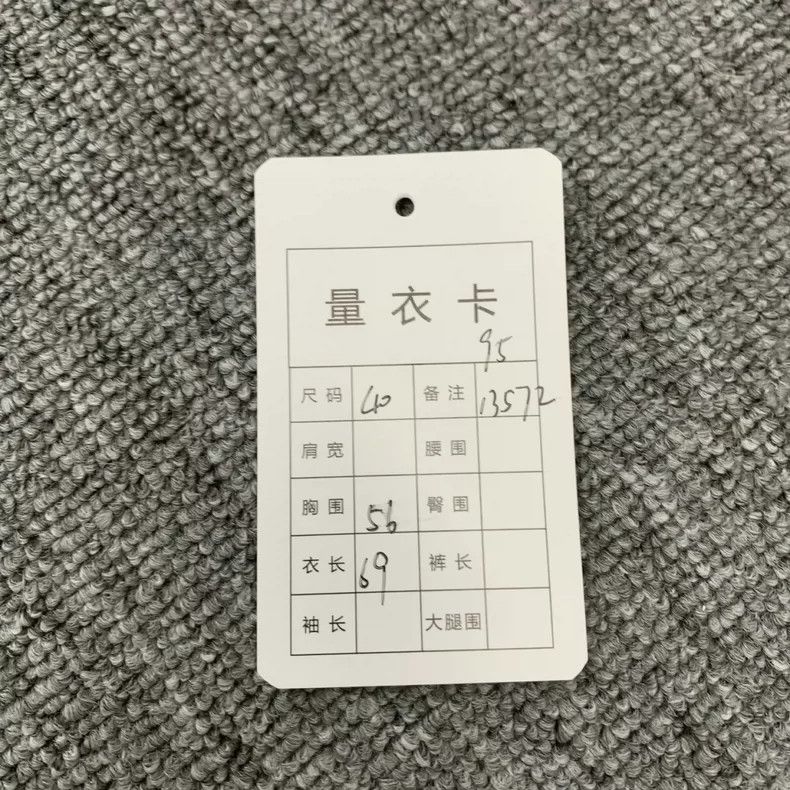 量衣卡
95
尺码 40 备注 13572
肩宽 腰围
胸围 56 臀围
衣长 69 裤长
袖长 大腿围